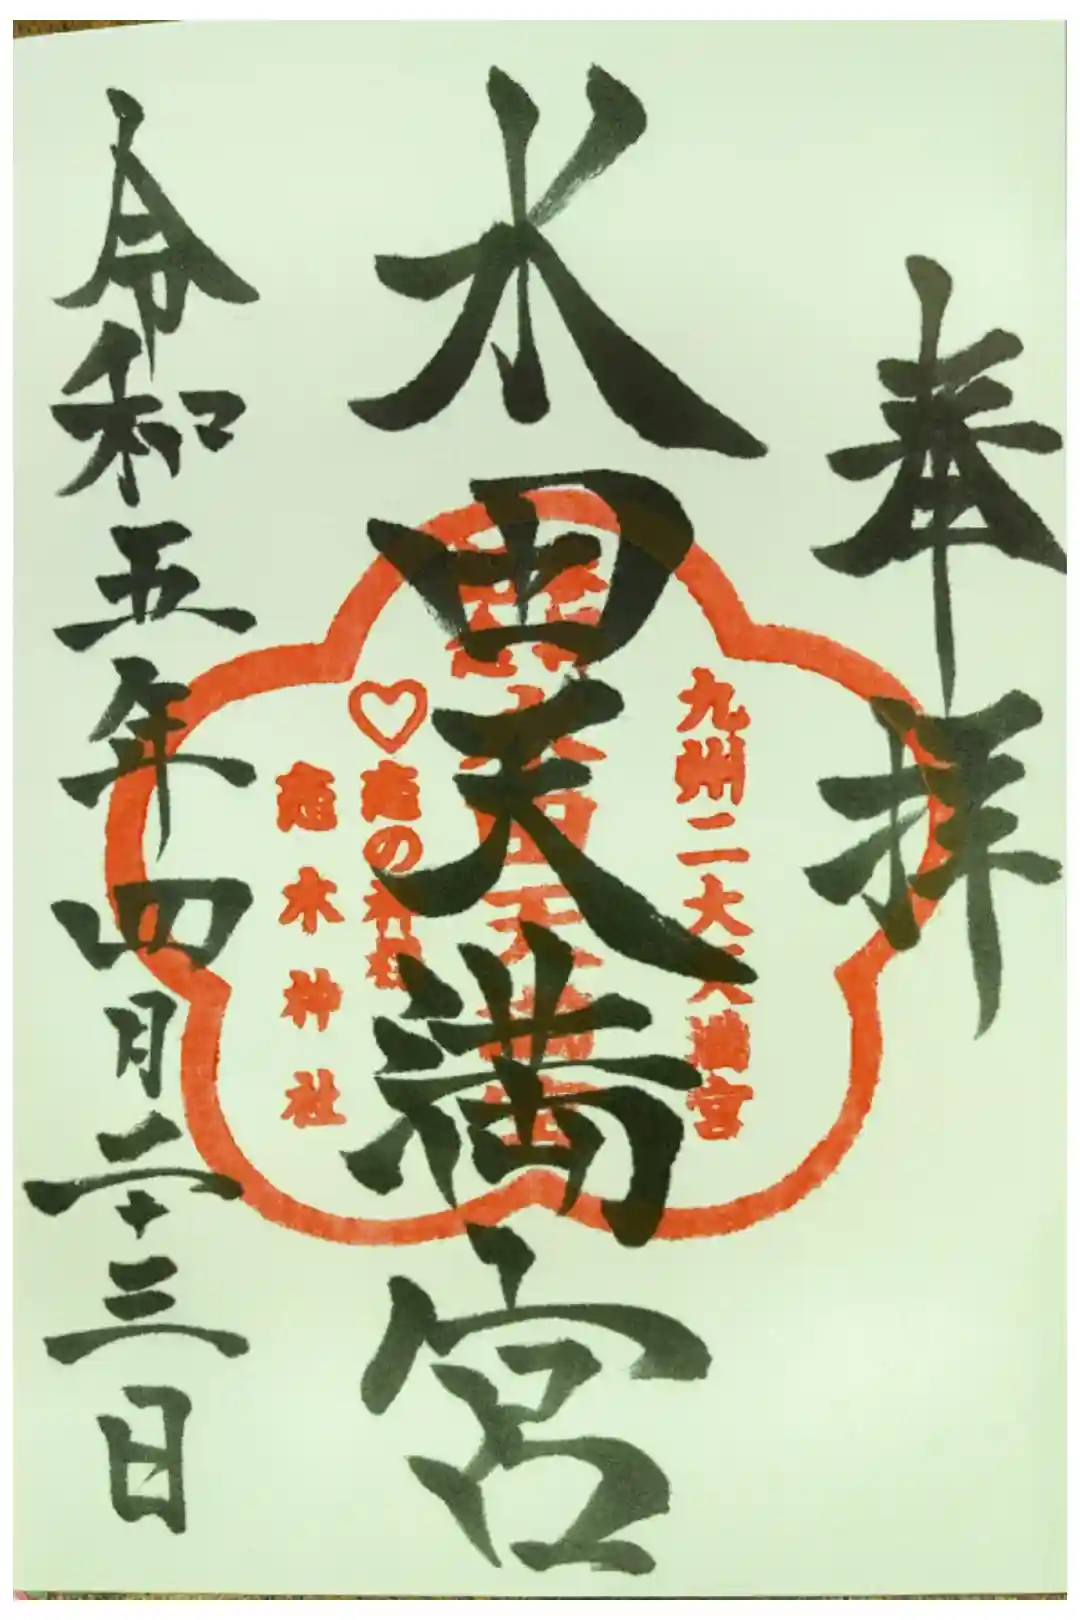 奉拝
水田天満宮
令和五年四月二十三日
九州二大天満宮
水田天満宮
♡恋の神様
恋木神社